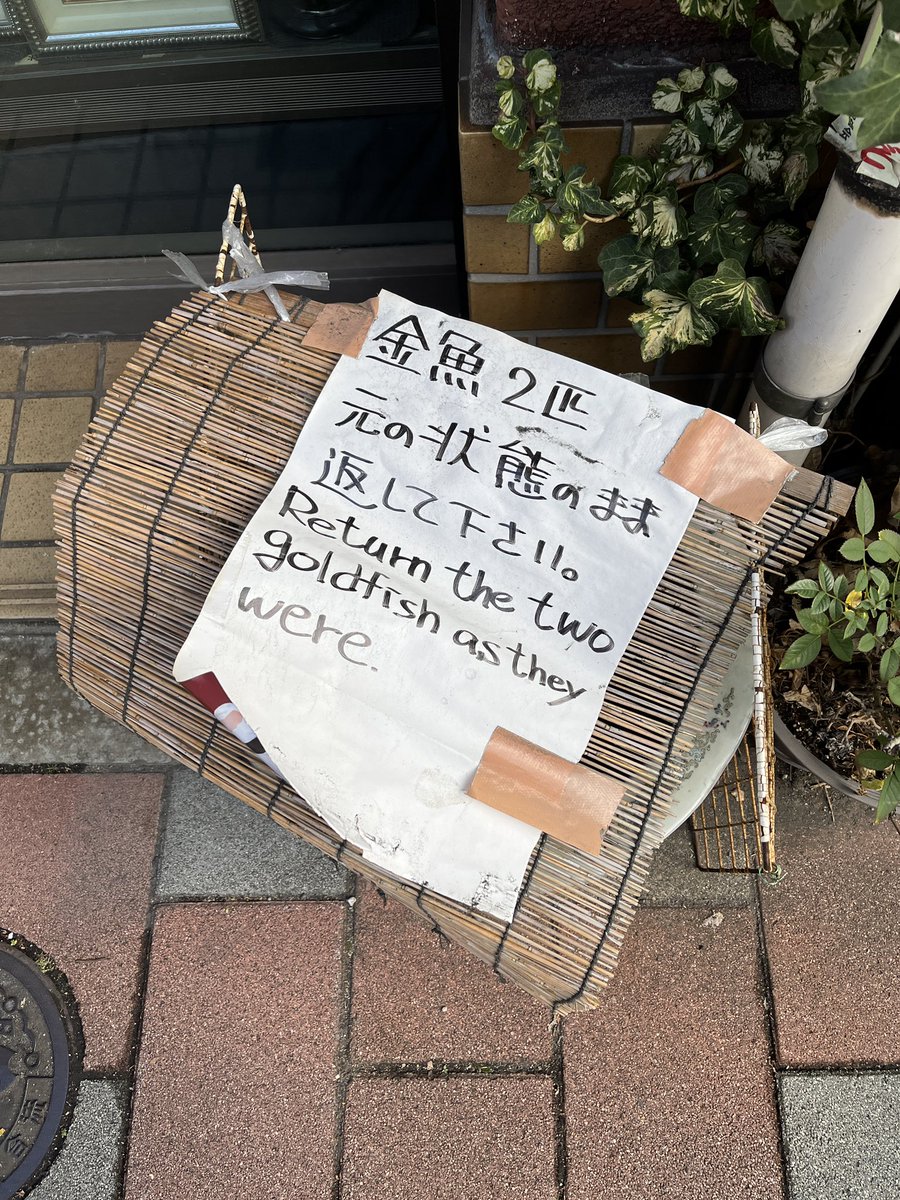 金魚2匹
元の状態のまま
返して下さい。
Return the two
goldfish as they
were.